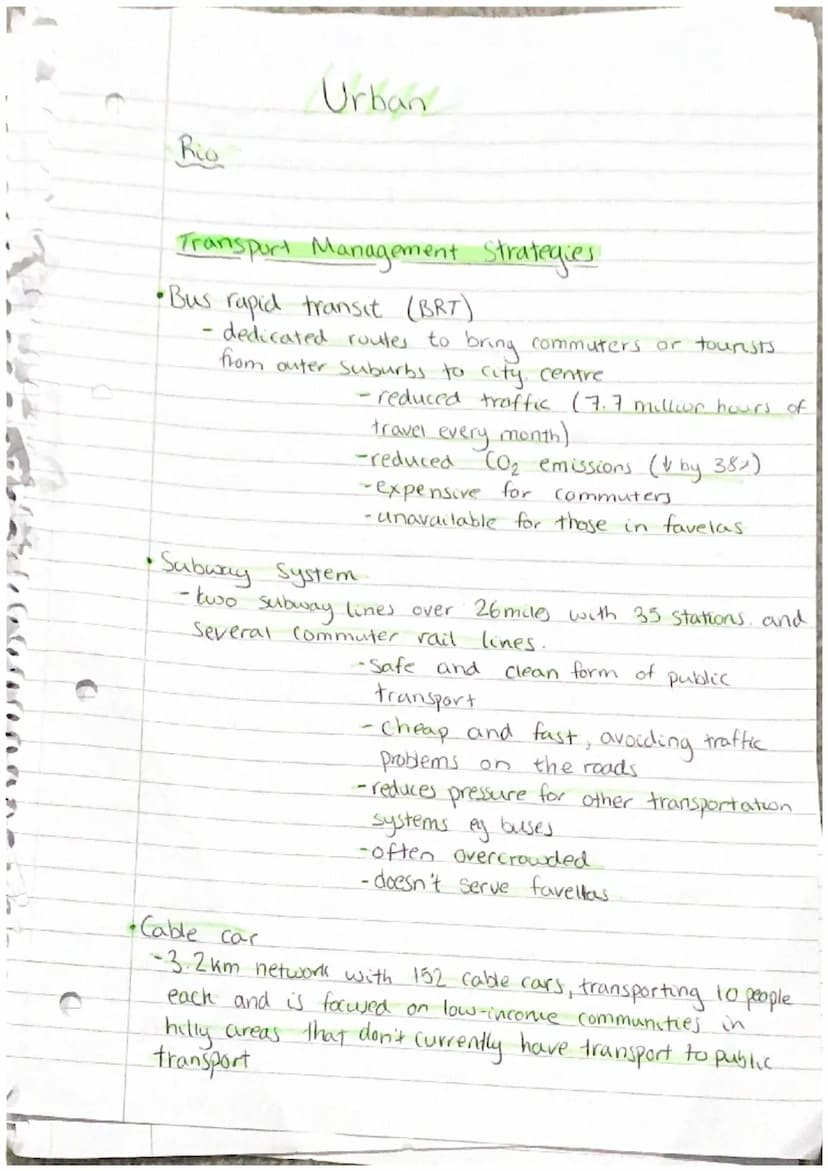 Urban
Rio
Transport Management Strategies
• Bus rapid transit (BRT)
- dedicated routes to bring commuters or tourists
from outer suburbs to city centre
- reduced traffic (7.7 million hours of
travel every month)
- reduced CO₂ emissions (↓ by 38%)
- expensive for commuters
- unavailable for those in favelas
• Subway System
- two subway lines over 26miles with 35 stations and
several commuter rail lines.
- Safe and clean form of public
transport
- cheap and fast, avoiding traffic
problems on the roads
- reduces pressure for other transportation
systems eg buses
- often overcrowded
- doesn't serve favellas
• Cable car
- 3.2km network with 152 cable cars, transporting 10 people
each and is focused on low-income communities in
hilly areas that don't currently have transport to public
transport